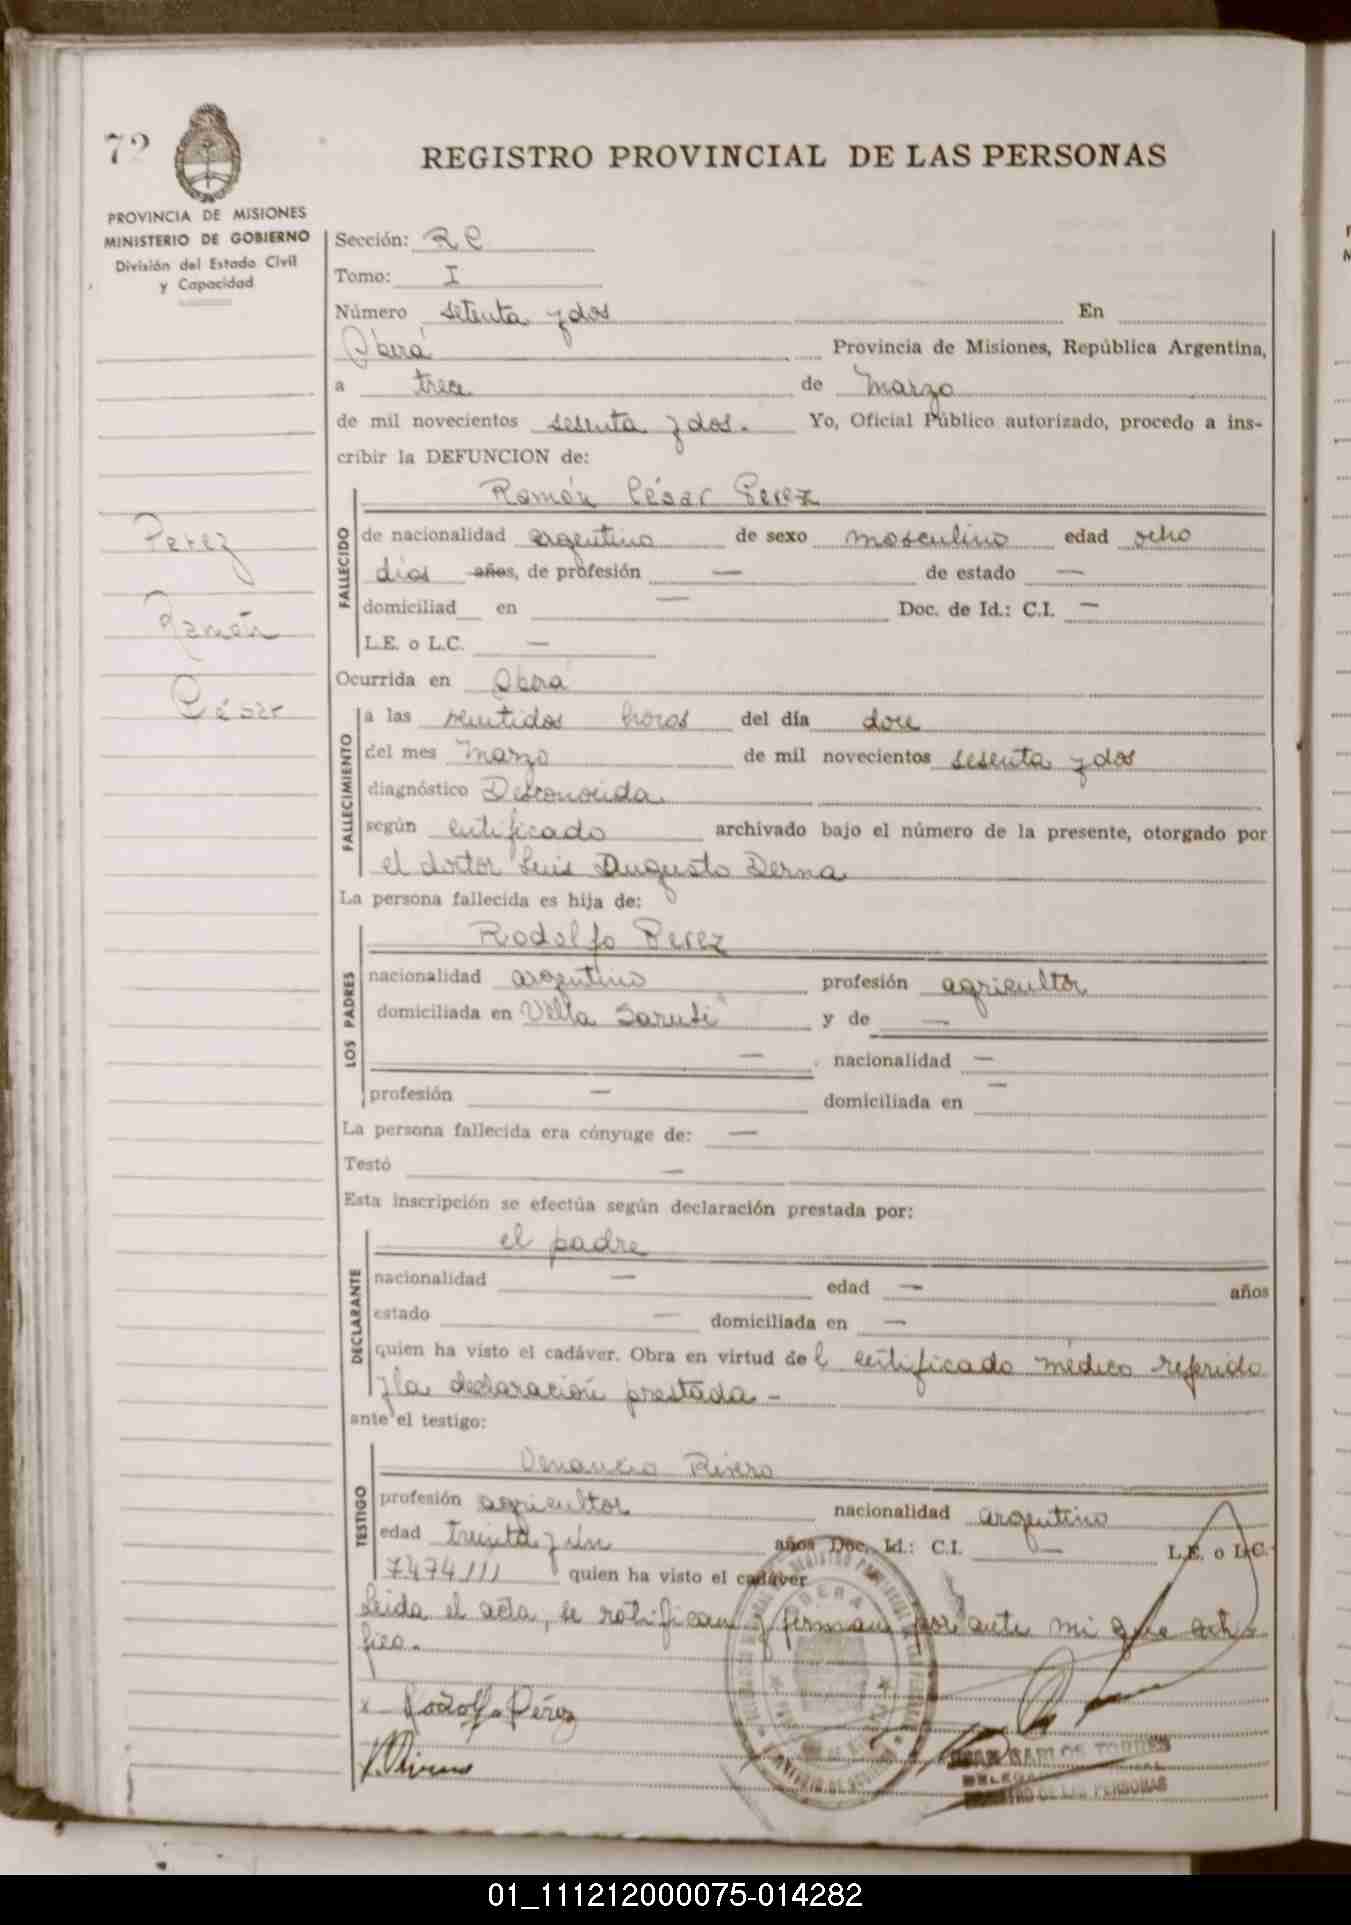 72
REGISTRO PROVINCIAL DE LAS PERSONAS
PROVINCIA DE MISIONES
MINISTERIO DE GOBIERNO
División del Estado Civil
y Capacidad
Sección: R C
Tomo: I
Número setenta y dos En
Oberá Provincia de Misiones, República Argentina,
a trece de Marzo
de mil novecientos sesenta y dos. Yo, Oficial Público autorizado, procedo a ins-
cribir la DEFUNCION de:
Ramón César Perez
Perez
Ramón
César
FALLECIDO
de nacionalidad argentino de sexo masculino edad ocho
días años, de profesión — de estado —
domiciliad en — Doc. de Id.: C.I. —
L.E. o L.C. —
Ocurrida en Oberá
FALLECIMIENTO
a las veintidos horas del día doce
del mes Marzo de mil novecientos sesenta y dos
diagnóstico Desconocida
según certificado archivado bajo el número de la presente, otorgado por
el doctor Luis Augusto Derna
La persona fallecida es hija de:
LOS PADRES
Rodolfo Perez
nacionalidad argentino profesión agricultor
domiciliada en Villa Sarubi y de —
— nacionalidad —
profesión — domiciliada en —
La persona fallecida era cónyuge de: —
Testó —
Esta inscripción se efectúa según declaración prestada por:
DECLARANTE
el padre
nacionalidad — edad — años
estado — domiciliada en —
quien ha visto el cadáver. Obra en virtud de l certificado médico referido
y la declaración prestada -
ante el testigo:
TESTIGO
Venancio Rivero
profesión agricultor nacionalidad argentino
edad treinta y un años Doc. Id.: C.I. — L.E. o L.C.
7474111 quien ha visto el cadáver
Leida el acta, se ratifican y firman por ante mi que certi
fico.
x Rodolfo Pérez
CARLOS TORRES
REGISTRO DE LAS PERSONAS
OBERA
01_111212000075-014282